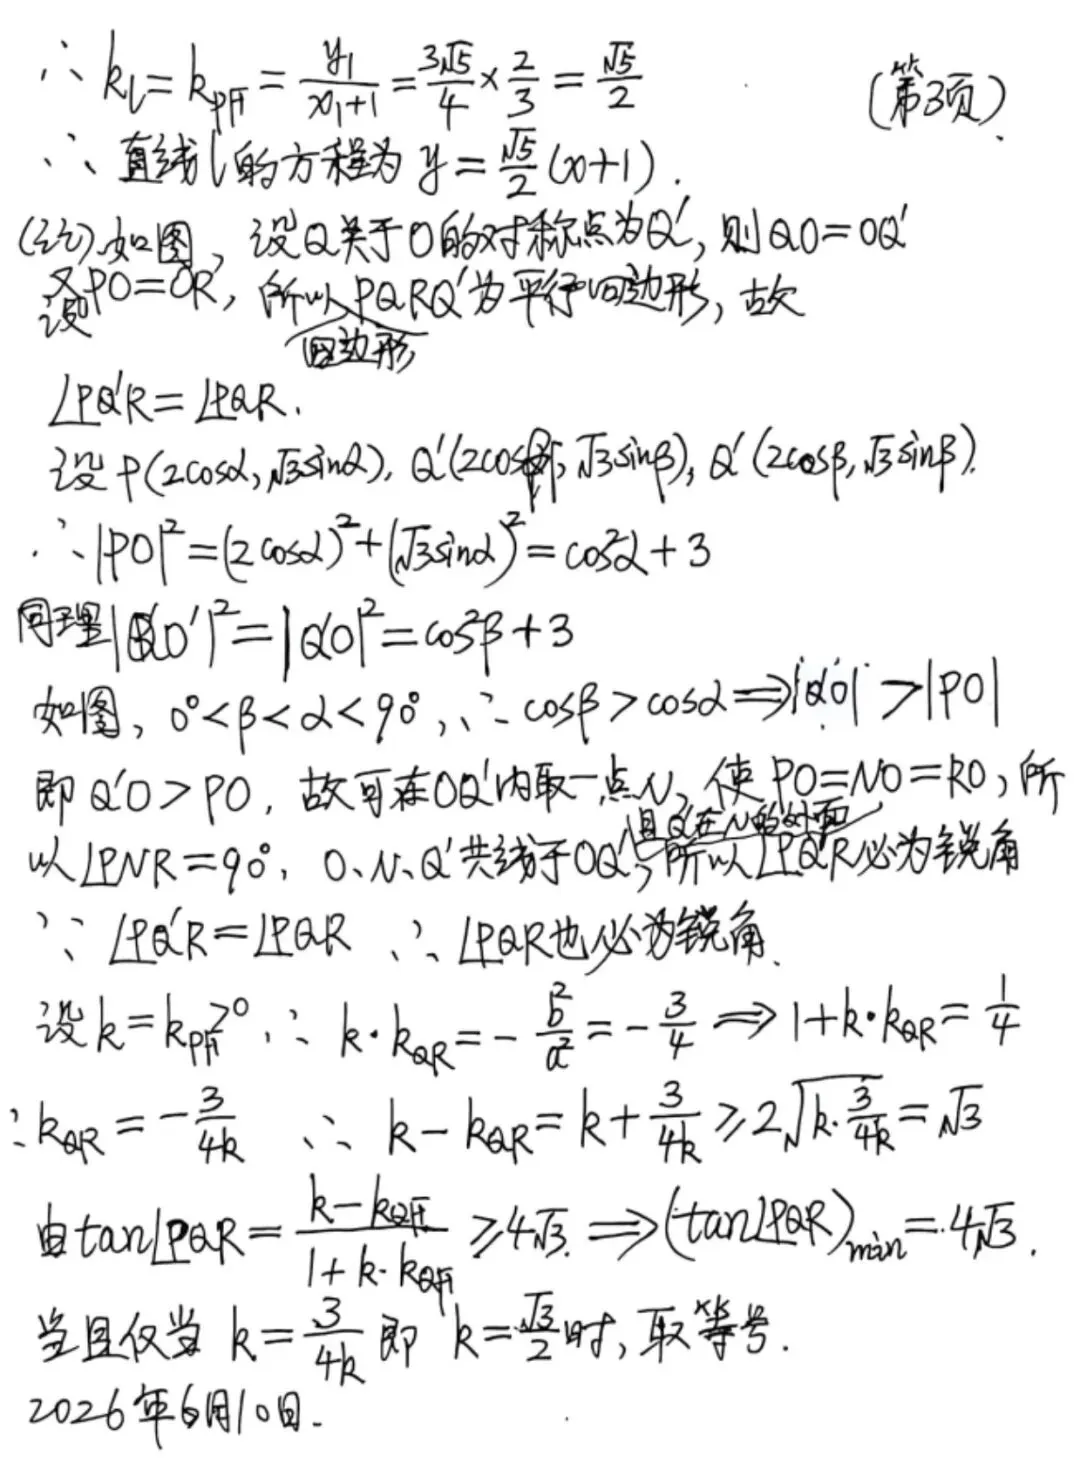 ∴ k_l = k_PF = y₁/(x₁+1) = 3√5/4 × 2/3 = √5/2 (第3页)
∴ 直线l的方程为 y = √5/2 (x+1).
如图, 设Q关于O的对称点为Q′, 则QO=OQ′
又PO=OR, 所以PQRQ′为平行四边形, 故
设
四边形
∠PQ′R=∠PQR.
设P(2cosα, √3sinα), Q′(2cosβ, √3sinβ), Q′(2cosβ, √3sinβ).
∴ |PO|² = (2cosα)² + (√3sinα)² = cos²α + 3
同理 |QO′|² = |Q′O|² = cos²β + 3
如图, 0°<β<α<90°, ∴ cosβ > cosα ⇒ |Q′O| > |PO|
即Q′O>PO, 故可在OQ′内取一点N, 使PO=NO=RO, 所
且Q′在N的外面
以∠PNR=90°, O、N、Q′共线于OQ′, 所以∠PQ′R必为锐角
∵ ∠PQ′R=∠PQR ∴ ∠PQR也必为锐角.
设k=k_PF>0, ∴ k·k_QR = -b²/a² = -3/4 ⇒ 1+k·k_QR = 1/4
∴ k_QR = -3/(4k) ∴ k-k_QR = k+3/(4k) ≥ 2√(k·3/(4k)) = √3
由tan∠PQR = (k-k_QF)/(1+k·k_QF) ≥ 4√3. ⇒ (tan∠PQR)min = 4√3.
当且仅当 k=3/(4k) 即 k=√3/2 时, 取等号.
2026年6月10日.